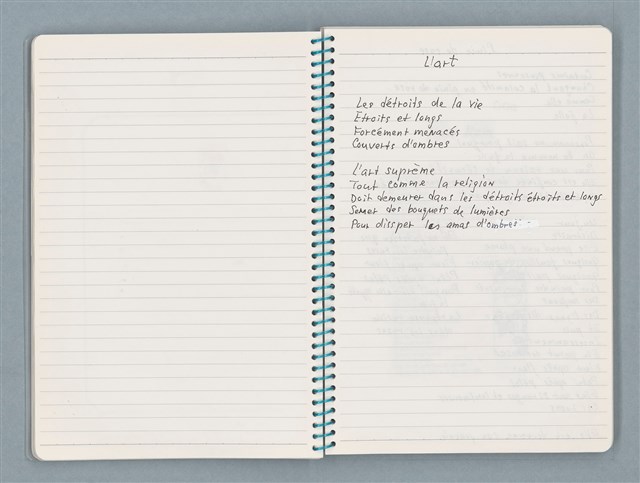 L'art
Les détroits de la vie
Etroits et longs
Forcément menacés
Couverts d'ombres
L'art suprême
Tout comme la religion
Doit demeurer dans les détroits étroits et longs
Semer des bouquets de lumières
Pour dissper les amas d'ombres